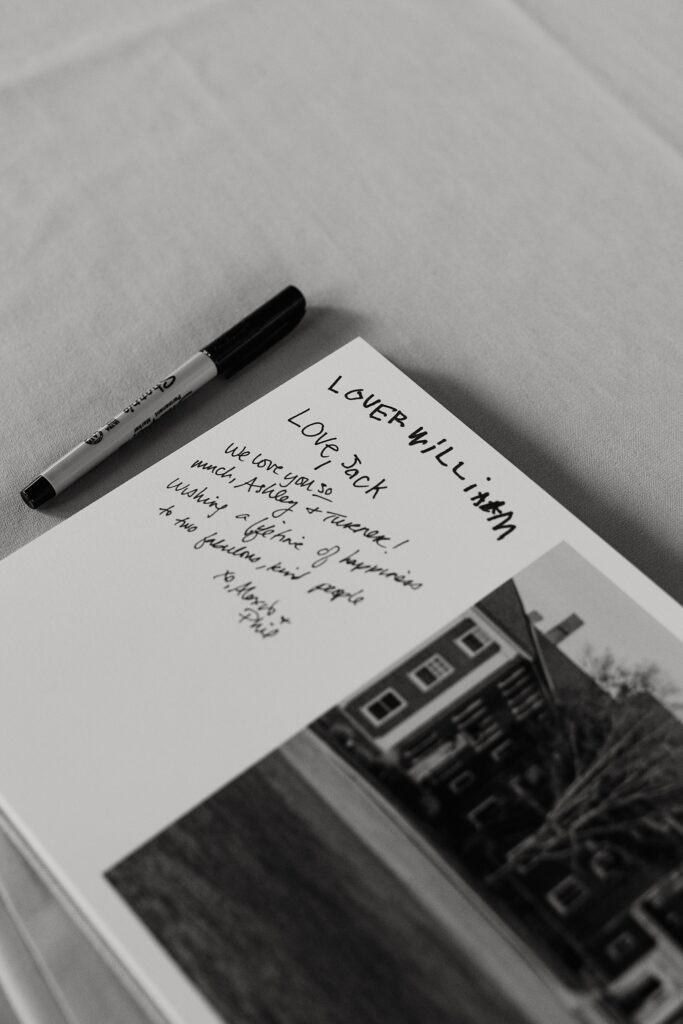 LOVER WILLIAM
LOVE, JACK
We love you so
much, Ashley & Turner!
Wishing a lifetime of happiness
to two fabulous, kind people
xo,
Phil
Sharpie
Permanent
Marker